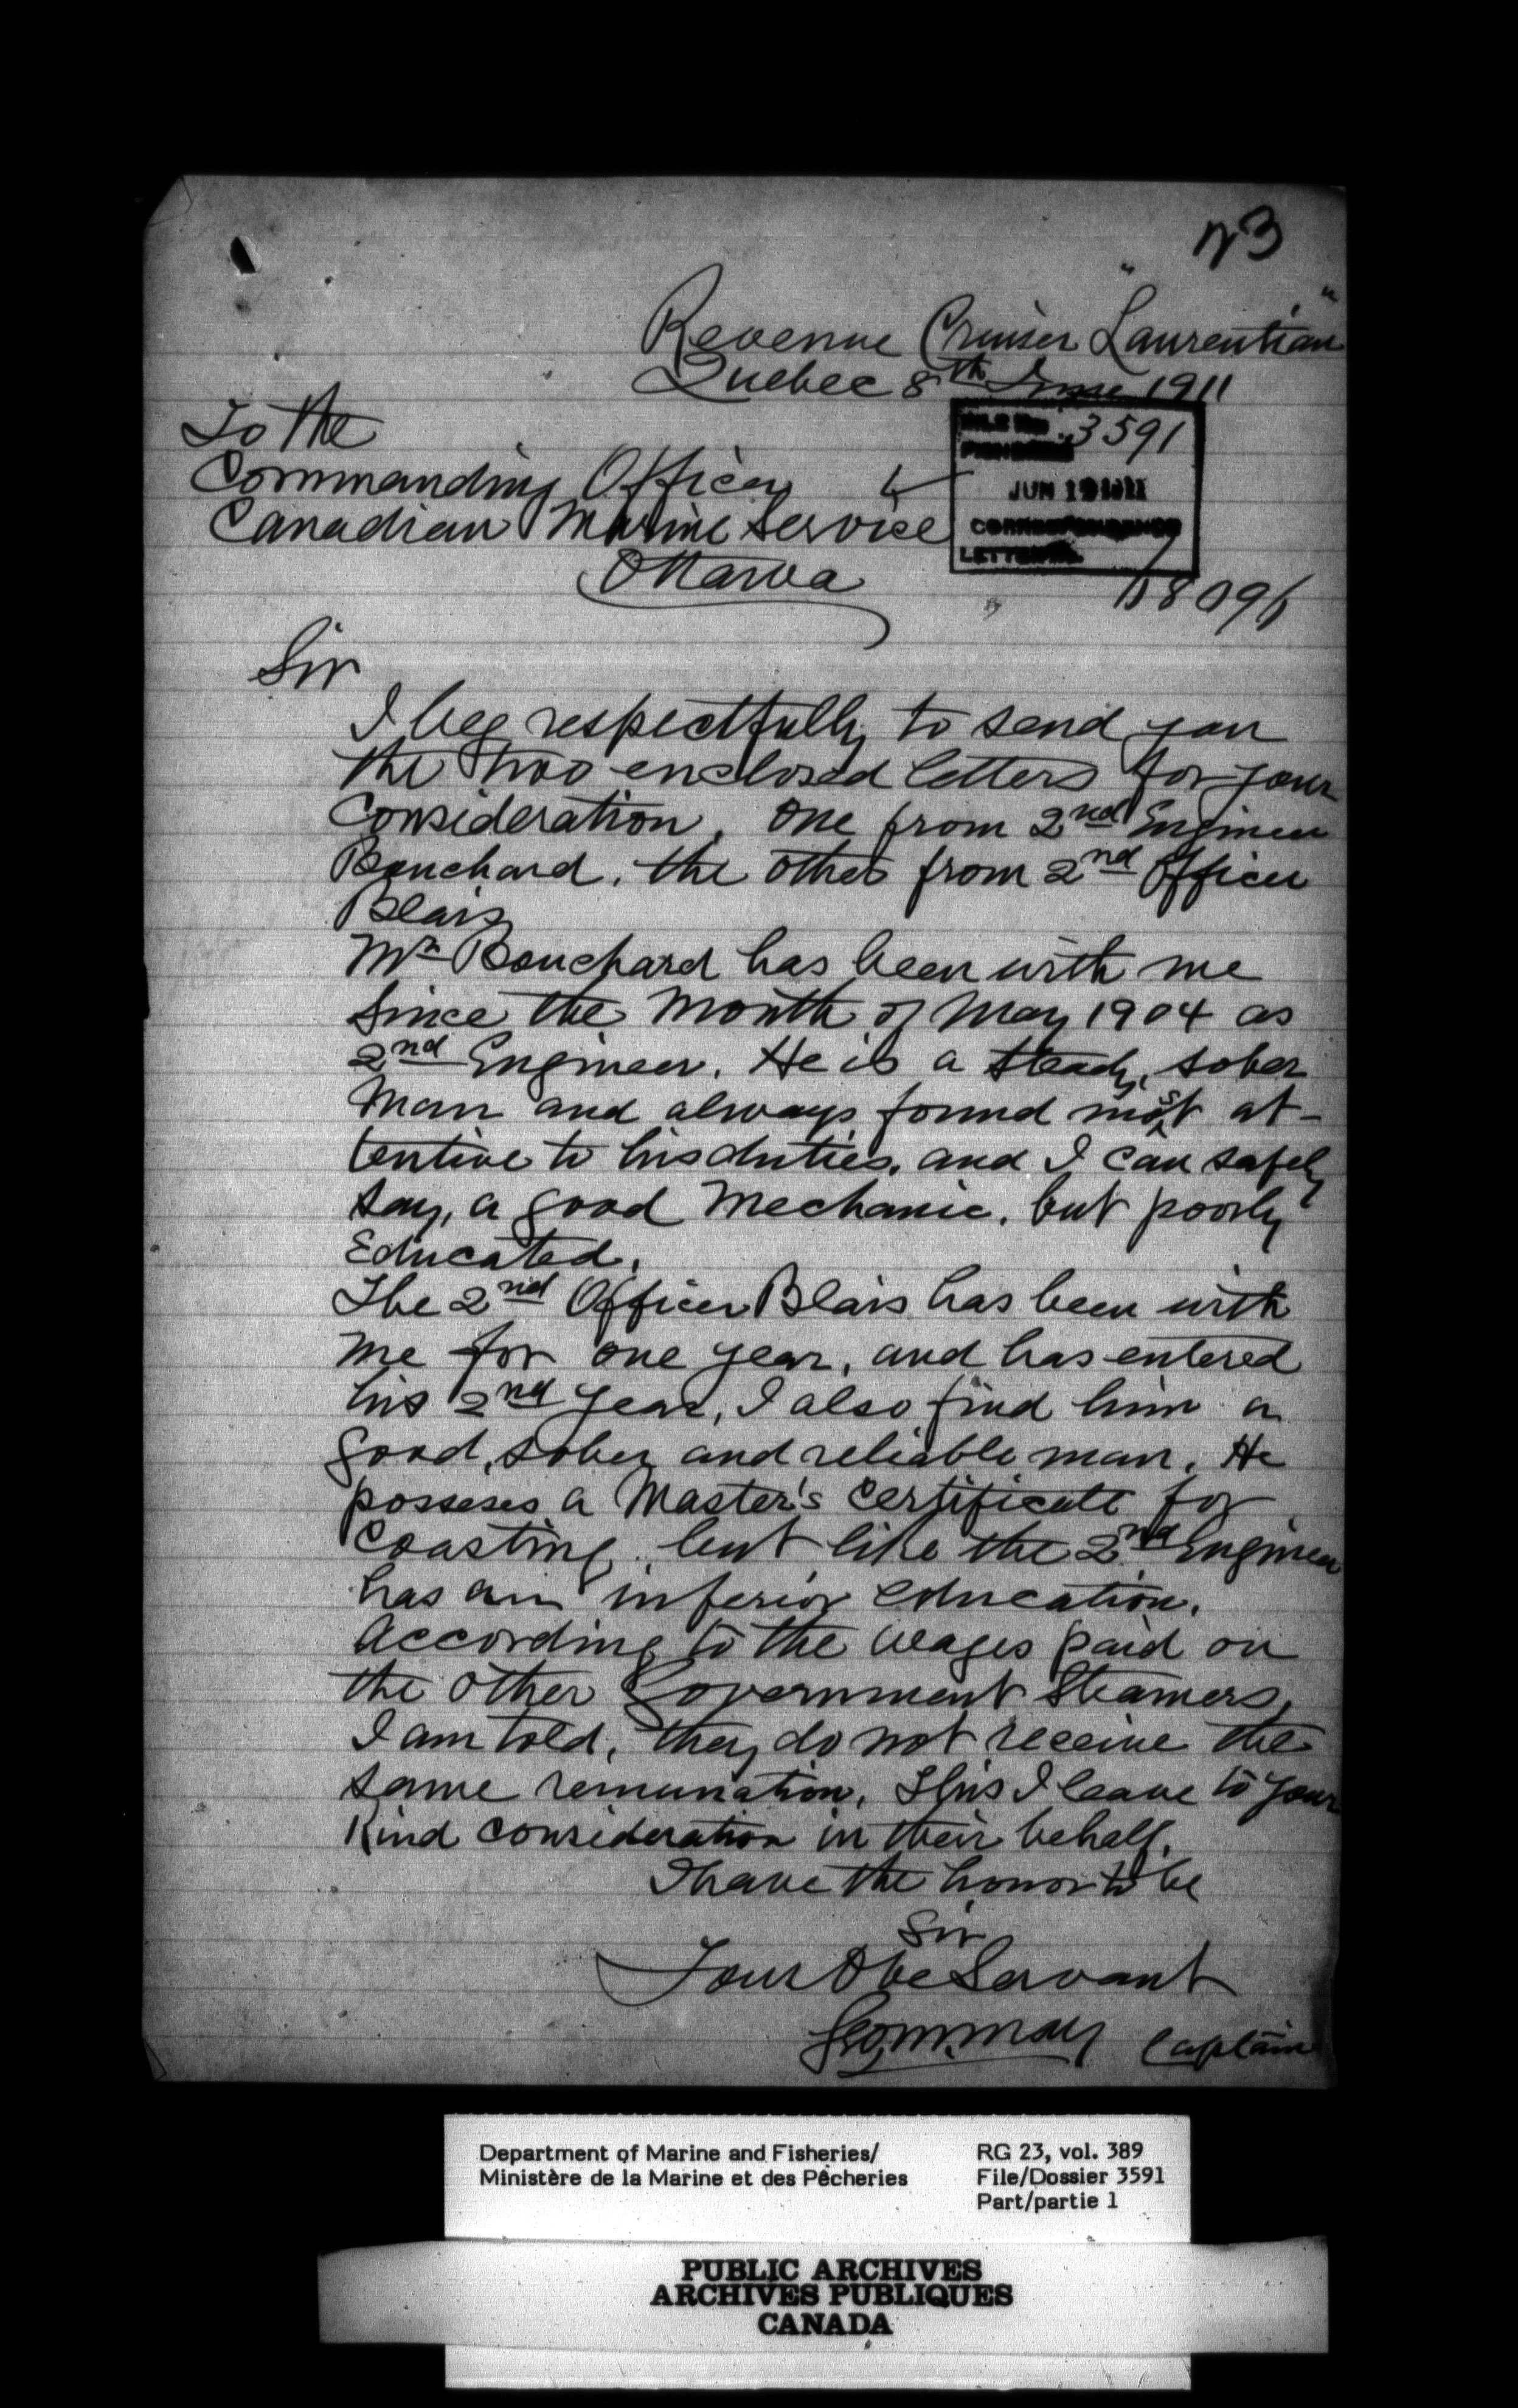 23
Revenue Cruiser "Laurentian"
Quebec 8th June 1911
To the
Commanding Officer
Canadian Marine Service
Ottawa
FILE No. 3591
FISHERIES
JUN 1911
CORRESPONDENCE
LETTER
Sir
I beg respectfully to send you
the two enclosed letters for your
Consideration, One from 2nd Engineer
Bouchard, the other from 2nd Officer
Blais
Mr Bouchard has been with me
since the month of May 1904 as
2nd Engineer. He is a steady, sober
man and always found most at-
tentive to his duties, and I can safely
say, a good mechanic, but poorly
Educated.
The 2nd Officer Blais has been with
me for one year, and has entered
his 2nd year, I also find him a
good, sober and reliable man. He
posseses a Master's Certificate for
Coasting, but like the 2nd Engineer
has an inferior education.
According to the wages paid on
the other Government Steamers,
I am told, they do not receive the
same remunation. This I leave to your
Kind consideration in their behalf.
I have the honor to be
Sir
Your Obe Servant
Geo. M. May Captain
Department of Marine and Fisheries/
Ministère de la Marine et des Pêcheries
RG 23, vol. 389
File/Dossier 3591
Part/partie 1
PUBLIC ARCHIVES
ARCHIVES PUBLIQUES
CANADA